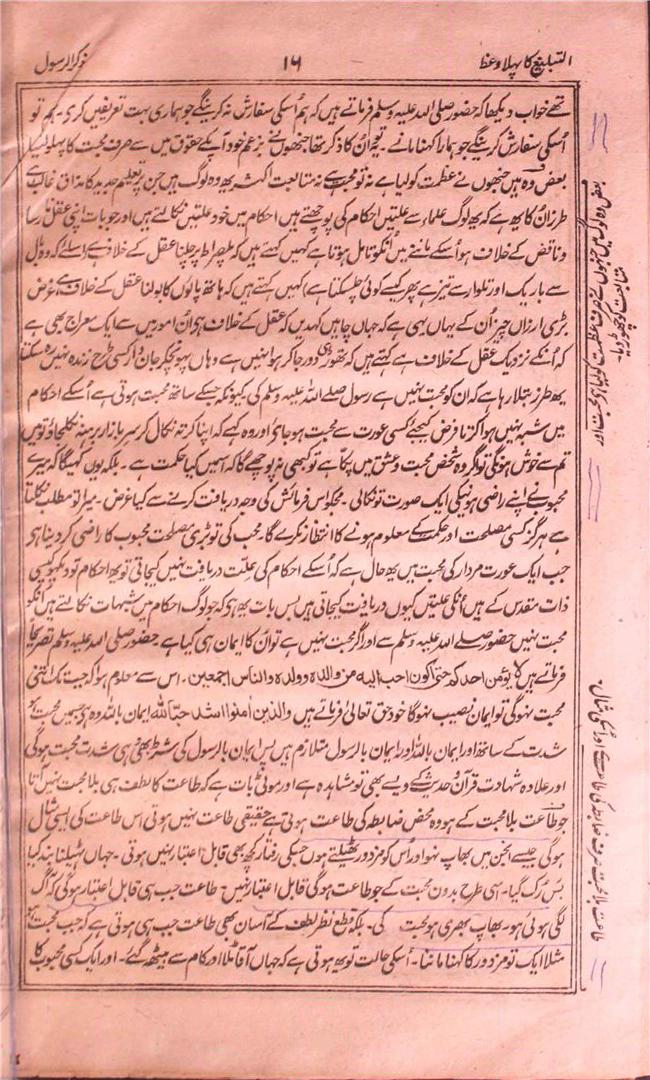 التبلیغ کا پہلا وعظ
۱۶
ذکر الرسول
تھے خواب دیکھا کہ حضور صلی اللہ علیہ وسلم فرماتے ہیں کہ ہم اُسکی سفارش نہ کرینگے جو ہماری بہت تعریفیں کرے۔ ہم تو
اُسکی سفارش کرینگے جو ہمارا کہنا مانے۔ خیر اُن کا ذکر تھا جنھوں نے بزعم خود آپکے حقوق میں سے صرف محبت کا پہلو لیا
بعض وہ ہیں جنھوں نے عظمت کو لیا ہے نہ تو محبت ہے نہ متابعت اکثر یہ وہ لوگ ہیں جن پر تعلیم جدید کا مذاق غالب ہے
طرز اُن کا یہ ہے کہ یہ لوگ علماء سے علتیں احکام کی پوچھتے ہیں احکام میں خود علتیں نکالتے ہیں اور جو بات اپنی عقل نارسا
و ناقص کے خلاف ہو اُسکے ماننے میں اُنکو تامل ہوتا ہے کہیں کہتے ہیں کہ پلصراط پر چلنا عقل کے خلاف ہے (اسلئے کہ وہ بال
سے باریک اور تلوار سے تیز ہے پھر کیسے کوئی چل سکتا ہے) کہیں کہتے ہیں کہ ہاتھ پائوں کا بولنا عقل کے خلاف ہے، غرض
بڑی ارزاں چیز اُن کے یہاں یہی ہے کہ جہاں چاہیں کہدیں کہ عقل کے خلاف ہے اُن امور میں سے ایک معراج بھی ہے
کہ اُنکے نزدیک عقل کے خلاف ہے کہتے ہیں کہ تھوڑی دور جا کر ہوا نہیں ہے وہاں پہونچکر جاندار کسی طرح زندہ نہیں رہ سکتا
یہ طرز بتلا رہا ہے کہ ان کو محبت نہیں ہے رسول صلے اللہ علیہ وسلم کی کیونکہ جسکے ساتھ محبت ہوتی ہے اُسکے احکام
میں شبہ نہیں ہوا کرتا فرض کیجئے کسی عورت سے محبت ہو جاوے اور وہ کہے کہ اپنا کرتہ نکال کر سر بازار برہنہ نکل جاؤ تو میں
تم سے خوش ہونگی تو اگر وہ شخص محبت و عشق میں پکا ہے تو کبھی نہ پوچھے گا کہ اسمیں کیا حکمت ہے۔ بلکہ یوں کہیگا کہ میرے
محبوب نے اپنے راضی ہونیکی ایک صورت تو نکالی۔ مجکو اس فرمائش کی وجہ دریافت کرنے سے کیا غرض۔ میرا تو مطلب نکلتا
ہے ہرگز کسی مصلحت اور حکمت کے معلوم ہونے کا انتظار نہ کرے گا۔ محب کی تو بڑی مصلحت محبوب کا راضی کر دینا ہی
جب ایک عورت مردار کی محبت میں یہ حال ہے کہ اُسکے احکام کی علت دریافت نہیں کیجاتی تو یہ احکام تو دیکھو کیسی
ذات مقدس کے ہیں اُنکی علتیں کیوں دریافت کیجاتی ہیں بس بات یہ ہے کہ جو لوگ احکام میں شبہات نکالتے ہیں اُنکو
محبت نہیں حضور صلے اللہ علیہ وسلم سے اور اگر محبت نہیں ہے تو اُن کا ایمان ہی کیا ہے۔ حضور صلی اللہ علیہ وسلم تصریحاً
فرماتے ہیں لا یؤمن احدکم حتی اکون احب الیه من والدہ و ولدہ والناس اجمعین۔ اس سے معلوم ہوا کہ جب تک اتنی
محبت نہوگی تو ایمان نصیب نہوگا خود حق تعالیٰ فرماتے ہیں والذین اٰمنوا اشد حبا للّٰه ایمان باللہ وہ ہی جسمیں محبت ہو
شدت کے ساتھ اور ایمان باللہ اور ایمان بالرسول متلازم ہیں پس ایمان بالرسول کی شرط بھی ہی شدت محبت ہوگی
اور علاوہ شہادت قرآن و حدیث کے ویسے بھی تو مشاہدہ ہے اور موٹی بات ہے کہ طاعت کا لطف ہی بلا محبت نہیں آتا
جو طاعت بلا محبت کے ہو وہ محض ضابطہ کی طاعت ہوتی ہے حقیقی طاعت نہیں ہوتی اس طاعت کی ایسی مثال
ہوگی جیسے انجن میں بھاپ نہو اور اُس کو مزدور ٹھیلتے ہوں جسکی رفتار کچھ بھی قابل اعتبار نہیں ہوتی۔ جہاں ٹھیلنا بند کیا
بس رُک گیا۔ اسی طرح بدون محبت کے جو طاعت ہوگی قابل اعتبار نہیں۔ طاعت جب ہی قابل اعتبار ہوگی کہ آگ
لگی ہوئی ہو۔ بھاپ بھری ہو محبت کی۔ بلکہ قطع نظر لطف کے آسان بھی طاعت جب ہی ہوتی ہے کہ جب محبت ہو
مثلاً ایک تو مزدور کا کہنا ماننا۔ اُسکی حالت تو یہ ہوتی ہے کہ جہاں آقا ٹلا اور کام سے بیٹھ گئے۔ اور ایک کسی محبوب کا
طاعت بلا محبت صرف ضابطہ کی طاعت ہے اور اُسکی مثال۔